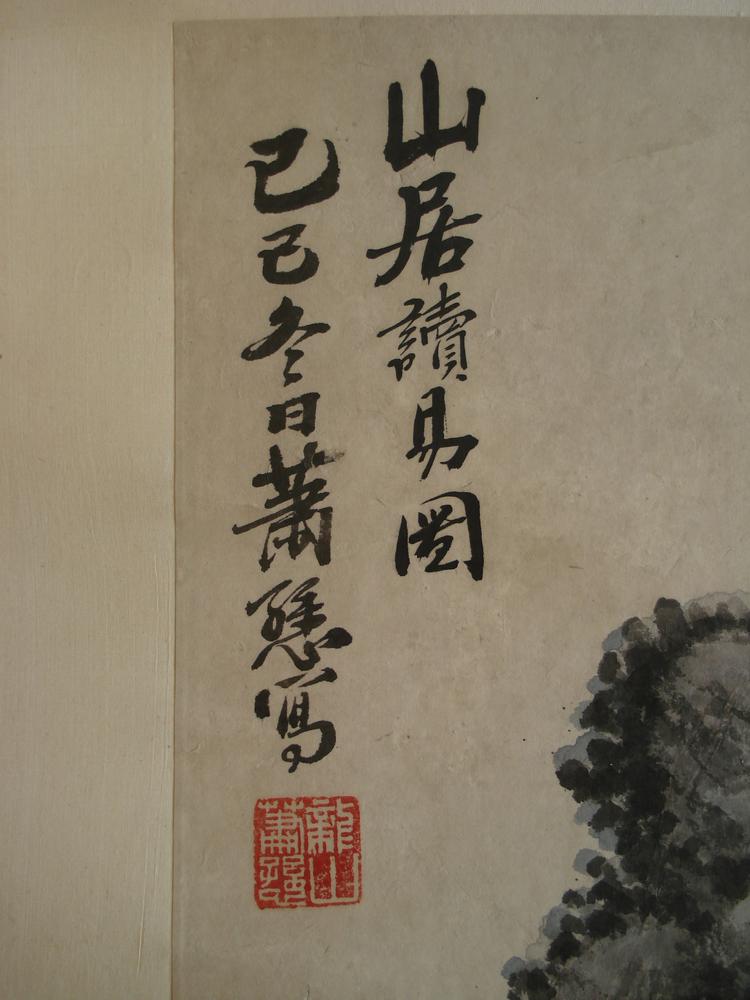 山居讀易圖
己巳冬日蕭愻寫
龍山蕭愻